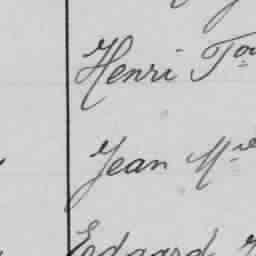 Henri Tou
Jean Mre
Edgard